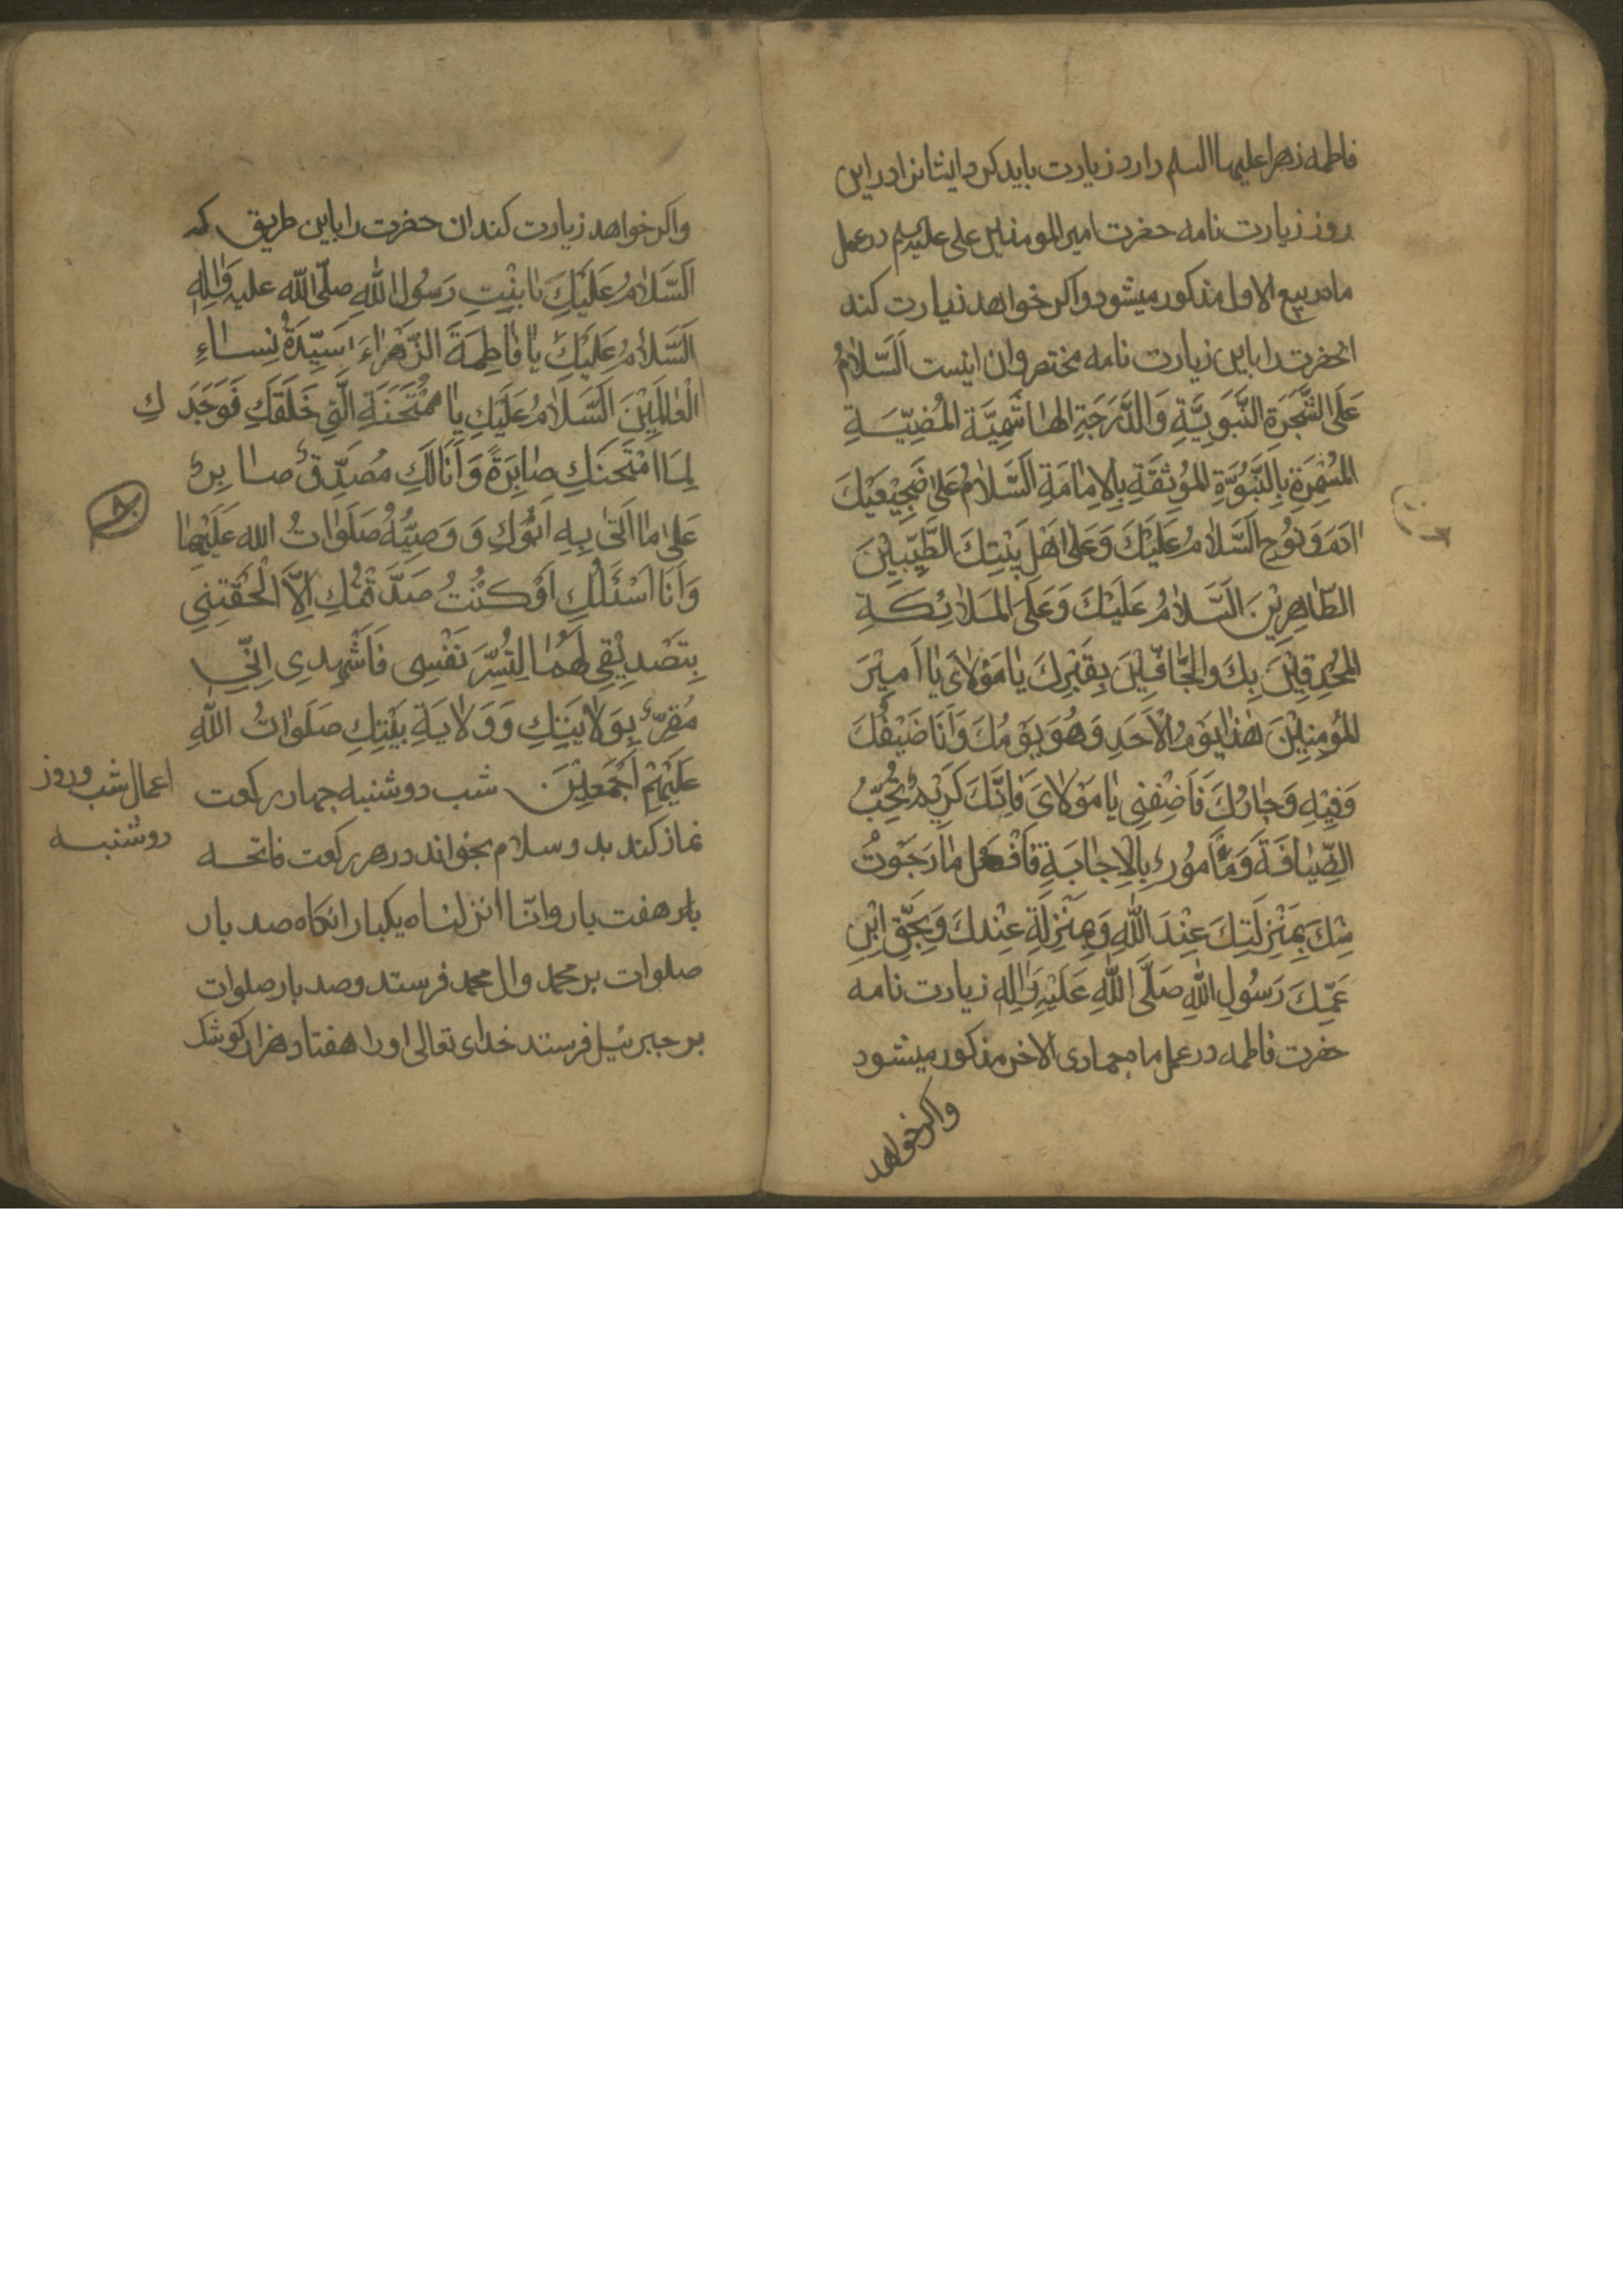 فاطمه زهرا علیها السلم دارد زیارت باید کرد ایشانرا در این
روز زیارت نامه حضرت امیر المومنین علی علیه السلم در عمل
ماه ربیع الاول مذکور میشود و اکر خواهد زیارت کند
انحضرت را باین زیارت نامه مختصر و ان اینست اَلسَّلامُ
عَلَى الشَّجَرَةِ النَّبَوِيَّةِ وَالدَّرَجَةِ الهاشَمِيَّةِ المُضِيّـَةِ
المُثْمِرَةِ بِالنَّبُوَّةِ المُونِقَةِ بِالاِمامَةِ اَلسَّلامُ عَلى ضَجِيْعَيْكَ
ادَمَ وَ نُوحٍ اَلسَّلامُ عَلَيْكَ وَعَلى اَهْلِ بَيْتِكَ الطَّيِّبِيْنَ
الطّاهِرِيْنَ اَلسَّلامُ عَلَيْكَ وَعَلَى المَلائِكَةِ
المُحْدِقِيْنَ بِكَ وَالحَافّيْنَ بِقَبْرِكَ يا مَوْلايَ يا اَمِيْرَ
المُؤمِنِيْنَ هٰذا يَوْمُ الْاَحَدِ وَهُوَ يَوْمُكَ وَاَنَا ضَيْفُكَ
وَفِيْهِ وَجارُكَ فَاَضِفْنِي يا مَوْلايَ فَاِنَّكَ كَرِيْمٌ تُحِبُّ
الضِّيافَةَ وَمَأمُورٌ بِالْاِجابَةِ فَافْعَل ما رَجَوْتُ
مِنْكَ بِمَنْزِلَتِكَ عِنْدَ اللّٰهِ وَمَنْزِلَةِ عِنْدكَ وَبِحَقِّ ابْنِ
عَمِّكَ رَسُولِ اللّٰهِ صَلَّى اللّٰهِ عَلَيْهِ وَالِهِ زیارت نامه
حضرت فاطمه در عمل ماه جمادی الاخر مذکور میشود
واکر خواهد
واکر خواهد زیارت کند ان حضرت را باین طریق که
اَلسَّلامُ عَلَيْكَ يا بِنْتِ رَسُولِ اللّٰهِ صلّى اللّٰه عليه وَالِهِ
اَلسَّلامُ عَلَيْكَ يا فاطِمَةَ الزَّهْراءَ سَيِّدَةُ نِساءِ
الْعالَمِيْنَ اَلسَّلَامُ عَلَيْكِ يا مُمْتَحَنَةِ الَّتِي خَلَقَكِ فَوَجَدَكِ
لِمَا امْتَحَنَكِ صابِرَةً وَاَنَا لَكِ مُصَدِّقٌ صابِرٌ
عَلى ما اَتى بِهِ اَبُوكِ وَ وَصِيُّهُ صَلَواتُ الله عَلَيْهِما
وَاَنَا اَسْئَلُكِ اَوْ كُنْتُ صَدَّقْتُكِ اِلَّا اَلْحَقْتِنِي
بِتَصْدِيْقِي لَهُما لِتُسِرَّ نَفْسِي فَاَشْهِدِي اِنّي
مُقِرٌّ بِوَلايَتِكِ وَ وَلايَةِ بَيْتِكِ صَلَواتُ اللّٰهِ
عَلَيْهِمْ اَجْمَعِيْنَ شب دوشنبه چهار رکعت
اعمال شب و روز
دوشنبه
نماز کند بد و سلام بخواند در هر رکعت فاتحه
هفت بار و انّا انزلناه یکبار انکاه صد بار
صلوات بر محمد و ال محمد فرستد و صد بار صلوات
بر جبرئیل فرستد خدای تعالی او را هفتاد هزار کوشک